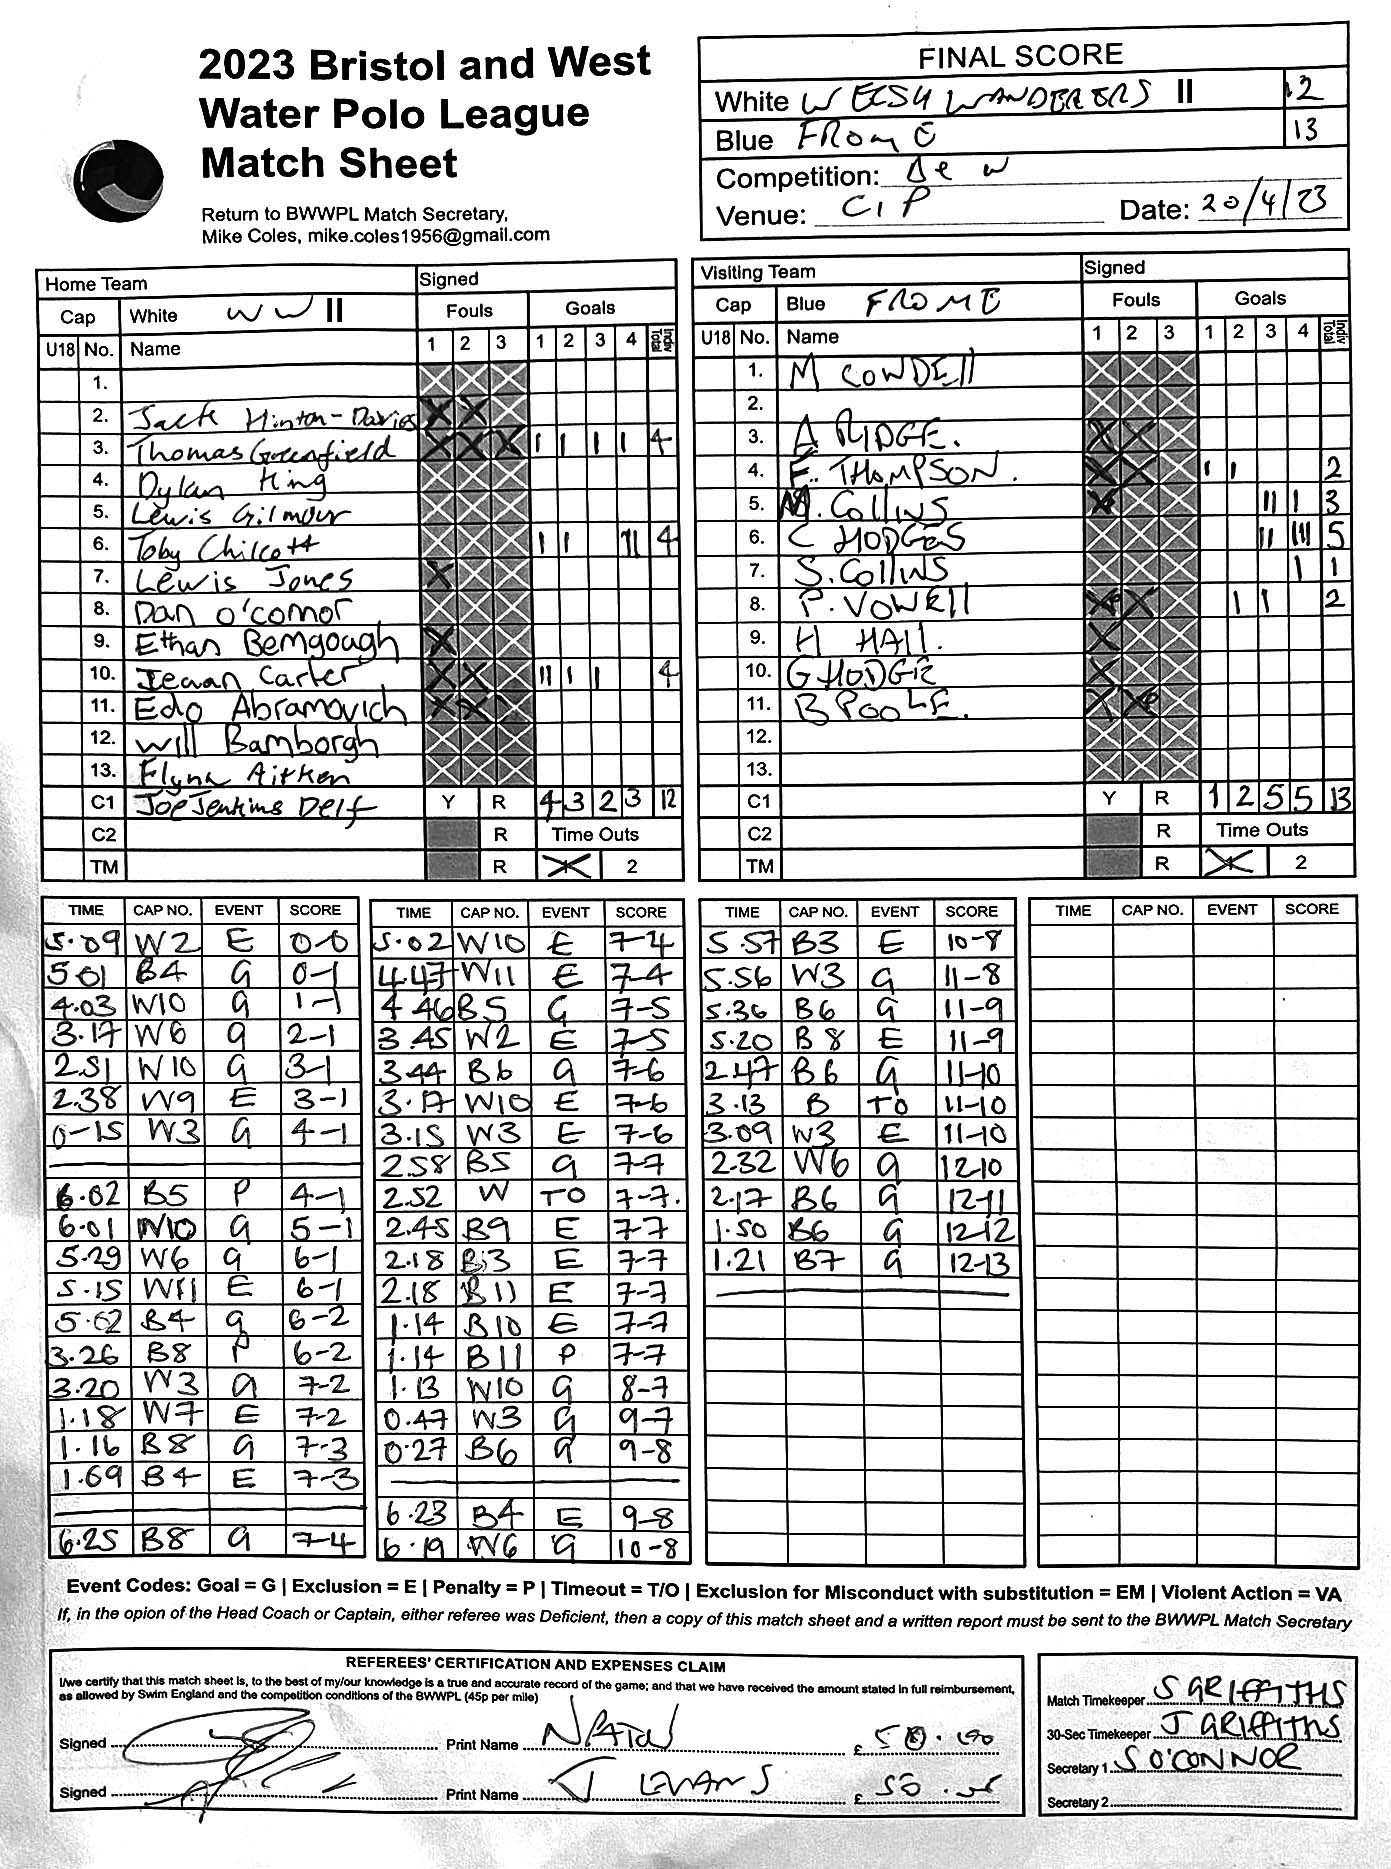 2023 Bristol and West
Water Polo League
Match Sheet
Return to BWWPL Match Secretary,
Mike Coles, mike.coles1956@gmail.com
FINAL SCORE
White WELSH WANDERERS II 12
Blue FROME 13
Competition: B e W
Venue: CIP Date: 20/4/23
Home Team Signed
Cap White WW II Fouls Goals
U18 No. Name 1 2 3 1 2 3 4 Indiv Total
1.
2. Jack Hinton-Davies X X
3. Thomas Greenfield X X X I I I I 4
4. Dylan King
5. Lewis Gilmour
6. Toby Chilcott I I II 4
7. Lewis Jones X
8. Dan O'Connor
9. Ethan Bemgough X
10. Ieuan Carter X X II I I 4
11. Edo Abramovich X X
12. Will Bamborgh
13. Flynn Aitken
C1 Joe Jenkins Delf Y R 4 3 2 3 12
C2 R Time Outs
TM R 1 2
Visiting Team Signed
Cap Blue FROME Fouls Goals
U18 No. Name 1 2 3 1 2 3 4 Indiv Total
1. M COWDEll
2.
3. A RIDGE. X X
4. E. THOMPSON. X X I I 2
5. M. Collins X II I 3
6. C HODGES II III 5
7. S. Collins I 1
8. P. VOWEll X X I I 2
9. H HAll. X
10. G HODGE X
11. B POOLE. X X P
12.
13.
C1 Y R 1 2 5 5 13
C2 R Time Outs
TM R 1 2
TIME CAP NO. EVENT SCORE
5.09 W2 E 0-0
5 01 B4 G 0-1
4.03 W10 G 1-1
3.17 W6 G 2-1
2.51 W10 G 3-1
2.38 W9 E 3-1
0-15 W3 G 4-1
6.02 B5 P 4-1
6.01 W10 G 5-1
5.29 W6 G 6-1
5.15 W11 E 6-1
5.02 B4 G 6-2
3.26 B8 P 6-2
3.20 W3 G 7-2
1.18 W7 E 7-2
1.16 B8 G 7-3
1.09 B4 E 7-3
6.25 B8 G 7-4
TIME CAP NO. EVENT SCORE
5.02 W10 E 7-4
4.47 W11 E 7-4
4 46 B5 G 7-5
3.45 W2 E 7-5
3.44 B6 G 7-6
3.17 W10 E 7-6
3.15 W3 E 7-6
2.58 B5 G 7-7
2.52 W TO 7-7.
2.45 B9 E 7-7
2.18 B3 E 7-7
2.18 B11 E 7-7
1.14 B10 E 7-7
1.14 B11 P 7-7
1.13 W10 G 8-7
0.47 W3 G 9-7
0.27 B6 G 9-8
6.23 B4 E 9-8
6.19 W6 G 10-8
TIME CAP NO. EVENT SCORE
5.57 B3 E 10-8
5.56 W3 G 11-8
5.36 B6 G 11-9
5.20 B8 E 11-9
2.47 B6 G 11-10
3.13 B TO 11-10
3.09 W3 E 11-10
2.32 W6 G 12-10
2.17 B6 G 12-11
1.50 B6 G 12-12
1.21 B7 G 12-13
TIME CAP NO. EVENT SCORE
Event Codes: Goal = G | Exclusion = E | Penalty = P | Timeout = T/O | Exclusion for Misconduct with substitution = EM | Violent Action = VA
If, in the opion of the Head Coach or Captain, either referee was Deficient, then a copy of this match sheet and a written report must be sent to the BWWPL Match Secretary
REFEREES' CERTIFICATION AND EXPENSES CLAIM
I/we certify that this match sheet is, to the best of my/our knowledge is a true and accurate record of the game; and that we have received the amount stated in full reimbursement,
as allowed by Swim England and the competition conditions of the BWWPL (45p per mile)
Signed Print Name £ 50.00
Signed Print Name J EVANS £
Match Timekeeper S GRIFFITHS
30-Sec Timekeeper J GRIFFITHS
Secretary 1 S O'CONNOR
Secretary 2